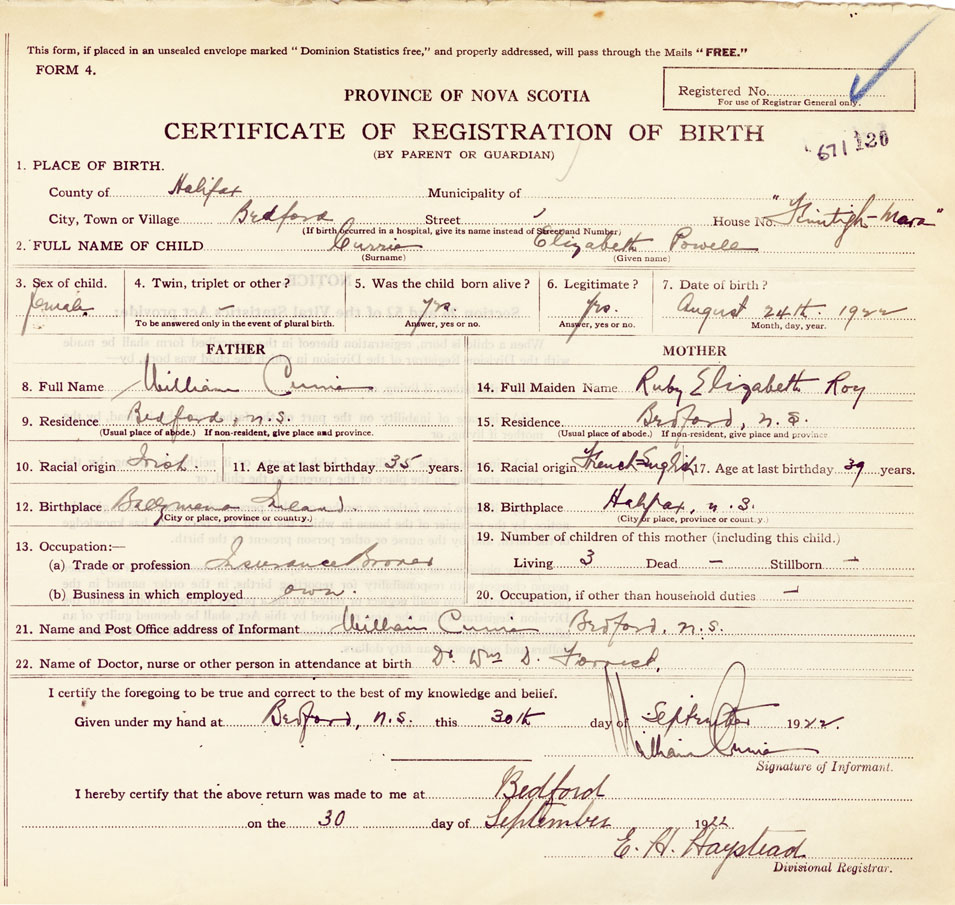 This form, if placed in an unsealed envelope marked “ Dominion Statistics free,” and properly addressed, will pass through the Mails “ FREE.”
FORM 4.
Registered No.
For use of Registrar General only.
PROVINCE OF NOVA SCOTIA
CERTIFICATE OF REGISTRATION OF BIRTH
(BY PARENT OR GUARDIAN)
671 120
1. PLACE OF BIRTH.
County of Halifax Municipality of
City, Town or Village Bedford Street House No.
(If birth occurred in a hospital, give its name instead of Street and Number)
2. FULL NAME OF CHILD Currie Elizabeth Powell
(Surname) (Given name)
3. Sex of child. 4. Twin, triplet or other? 5. Was the child born alive? 6. Legitimate? 7. Date of birth?
female. – yrs. yrs. August 24th. 1922
To be answered only in the event of plural birth. Answer, yes or no. Answer, yes or no. Month, day, year.
FATHER MOTHER
8. Full Name William Currie 14. Full Maiden Name Ruby Elizabeth Roy
9. Residence Bedford, n.s. 15. Residence Bedford, n.s.
(Usual place of abode.) If non-resident, give place and province. (Usual place of abode.) If non-resident, give place and province
10. Racial origin Irish. 11. Age at last birthday 35 years. 16. Racial origin French-English 17. Age at last birthday 39 years.
12. Birthplace Ireland. 18. Birthplace Halifax, n.s.
(City or place, province or country.) (City or place, province or country.)
13. Occupation:— 19. Number of children of this mother (including this child.)
(a) Trade or profession Insurance Broker Living 3 Dead – Stillborn –
(b) Business in which employed own. 20. Occupation, if other than household duties –
21. Name and Post Office address of Informant William Currie Bedford, n.s.
22. Name of Doctor, nurse or other person in attendance at birth Dr. Wm D. Forrest.
I certify the foregoing to be true and correct to the best of my knowledge and belief.
Given under my hand at Bedford, n.s. this 30th day of September 1922.
William Currie
Signature of Informant.
I hereby certify that the above return was made to me at Bedford
on the 30 day of September 1922
E. H. Haystead
Divisional Registrar.